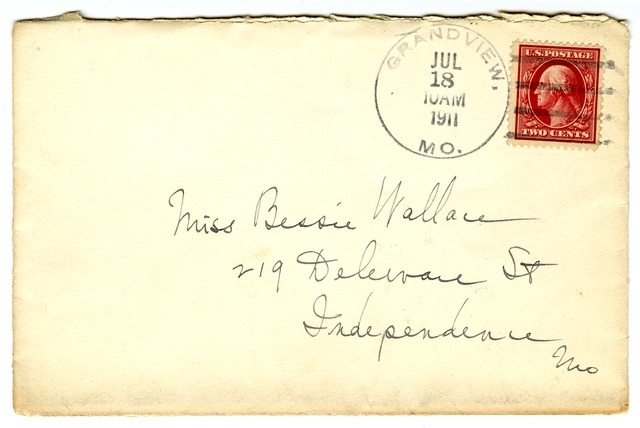 GRANDVIEW,
JUL
18
10AM
1911
MO.
U.S. POSTAGE
TWO CENTS
Miss Bessie Wallace
219 Deleware St
Independence
Mo